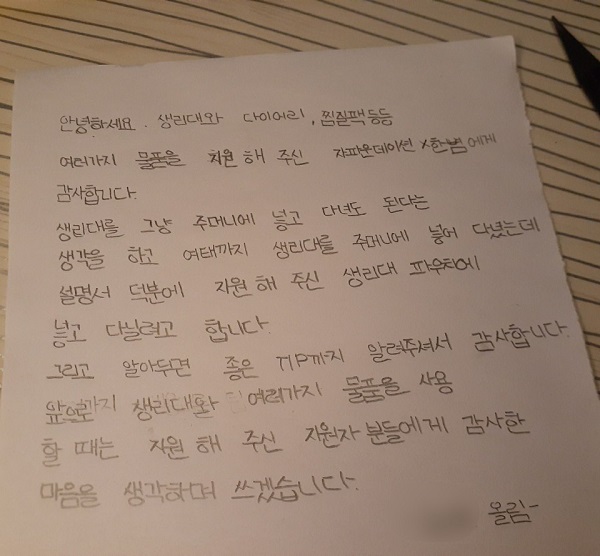 안녕하세요. 생리대와 다이어리, 찜질팩 등등
여러가지 물품을 지원 해 주신 자파운데이션 X한봄에게
감사합니다.
생리대를 그냥 주머니에 넣고 다녀도 된다는
생각을 하고 여태까지 생리대를 주머니에 넣어 다녔는데
설명서 덕분에 지원 해 주신 생리대 파우치에
넣고 다닐려고 합니다.
그리고 알아두면 좋은 TIP까지 알려주셔서 감사합니다.
앞으로 생리대와 여러가지 물품을 사용
할 때는 지원 해 주신 지원자 분들에게 감사한
마음을 생각하며 쓰겠습니다.
올림-